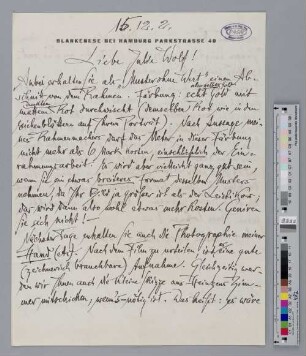 15.12.2.
BLANKENESE BEI HAMBURG PARKSTRASSE 40
Liebe Julie Wolf!
Anbei erhalten Sie als „Muster ohne Wert" einen Ab-
schnitt von dem Rahmen. Färbung: echt Gold mit
mattem Rot durchwischt (demselben Rot wie in den
auf Ihrem Porträt). Nach Aussage, meines
Rahmenmacher darf das Meter in dieser Färbung
nicht mehr als 6 Mark kosten, einschließlich der Ein-
rahmungsarbeit. Es wird aber vielleicht ganz gut sein,
wenn Sie ein etwas breiteres Format desselben Musters
nehmen, da Ihr Bild ja größer ist als der
das wird dann also wohl etwas mehr kosten. Genieren
Sie sich nicht!
Nächster Tage erhalten Sie auch die Photographie meiner
Hand. Nach dem Film zu urteilen ist es eine gute
(zeichnerisch brauchbare) Aufnahme. Gleichzeitig wer-
den wir Ihnen auch die kleine Skizze aus Zim-
mer mitschicken, wenn's nötig ist. Das heißt: es wäre